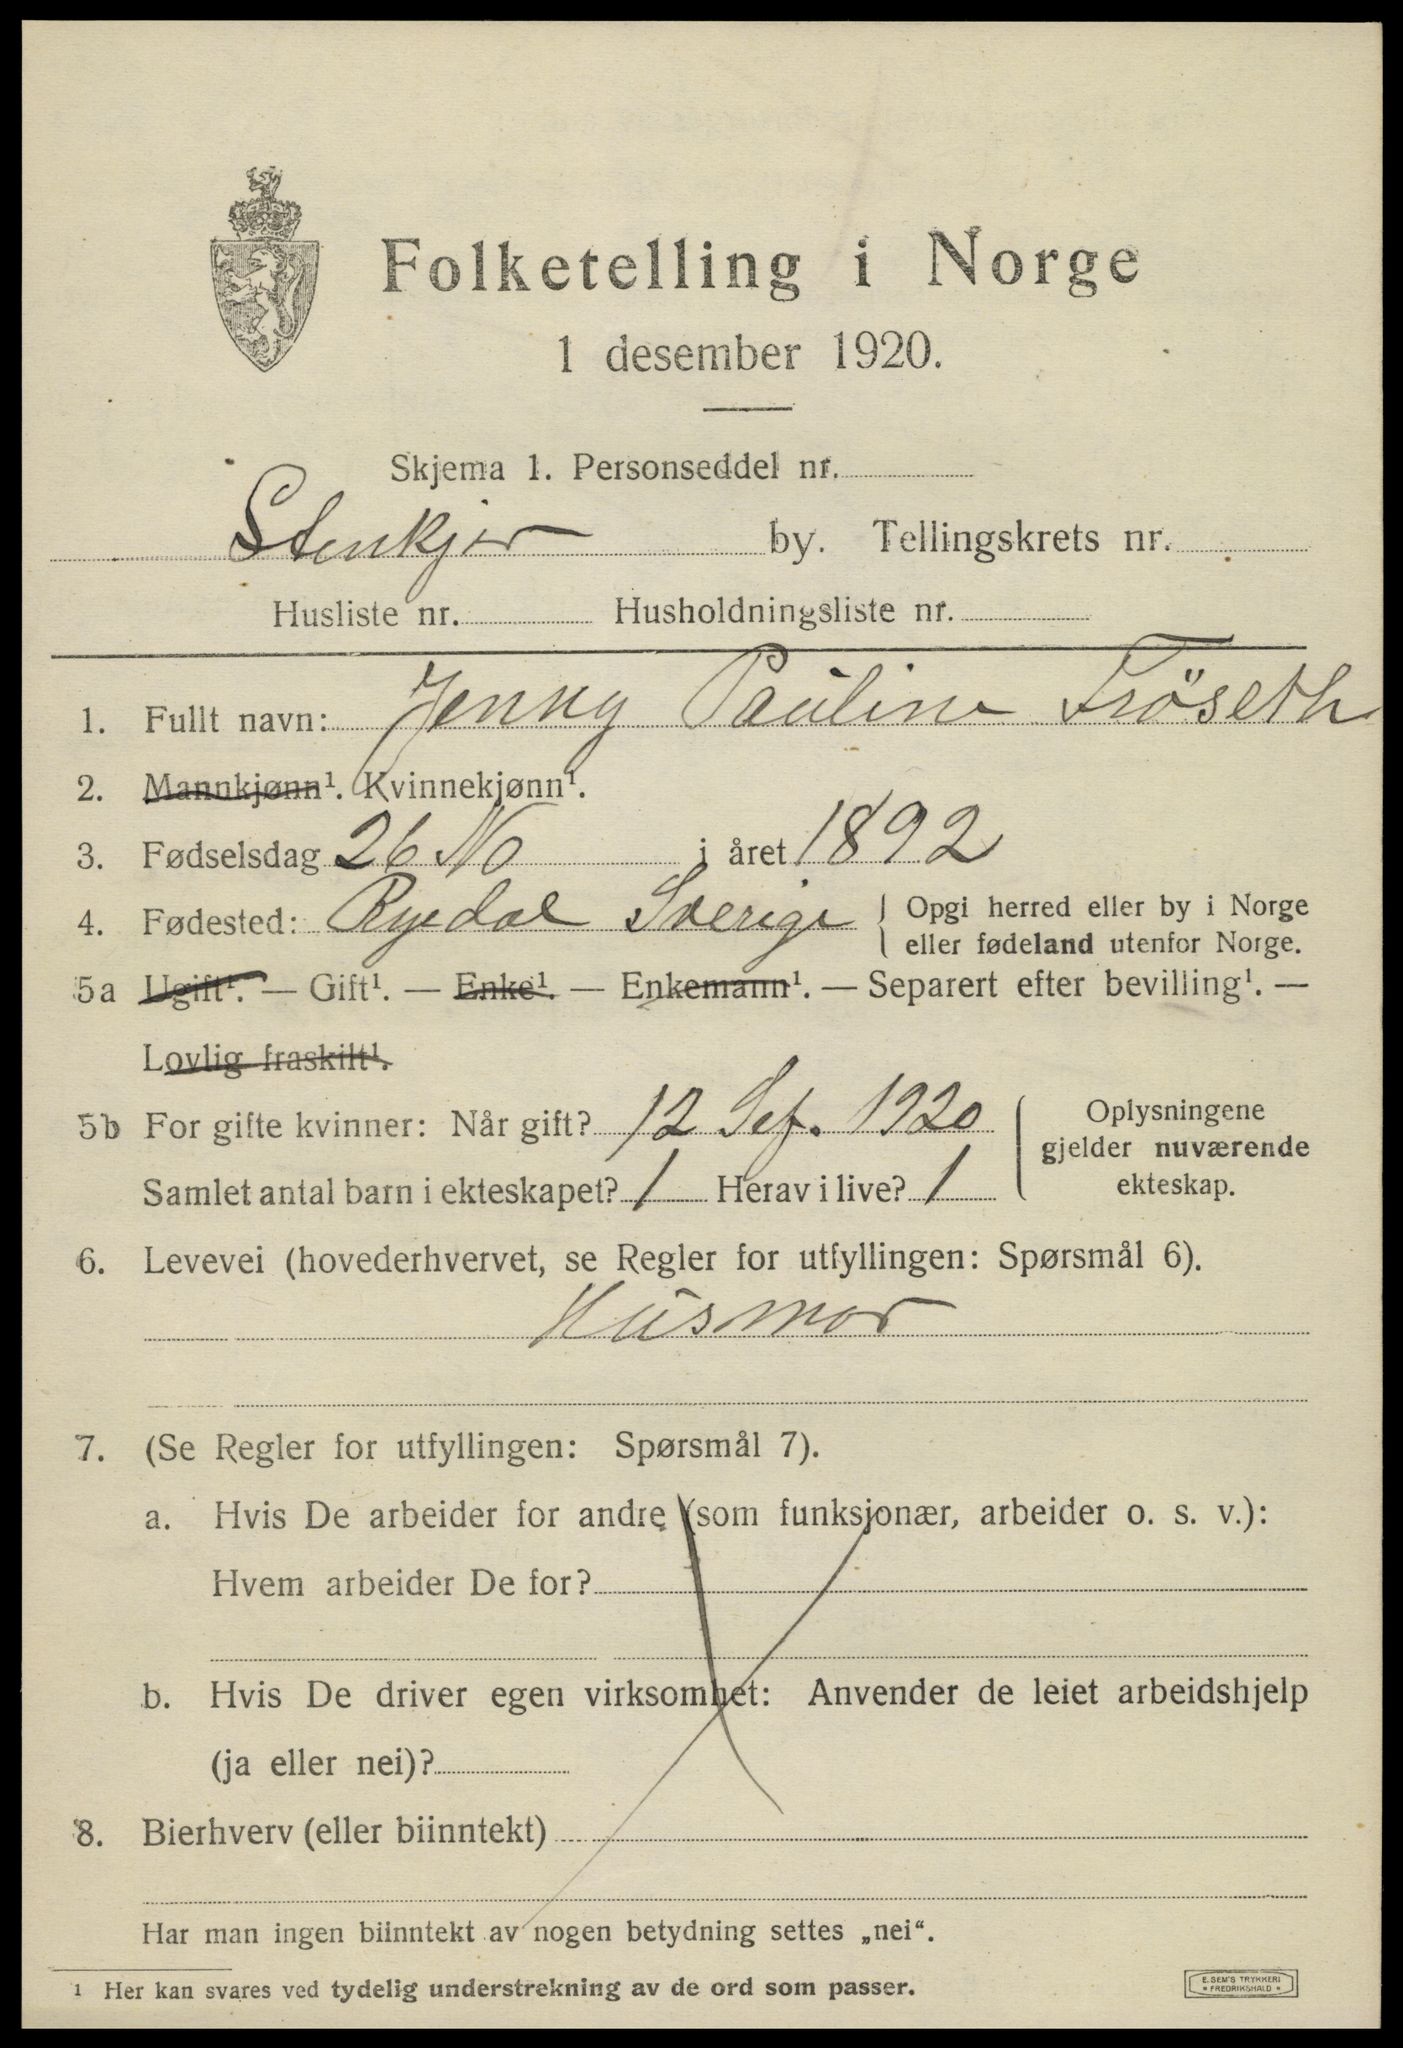 Folketelling i Norge
1 desember 1920.
Skjema 1. Personseddel nr.
Stenkjer by. Tellingskrets nr.
Husliste nr. Husholdningsliste nr.
1. Fullt navn: Jenny Pauline Fröseth
2. Mannkjønn¹. Kvinnekjønn¹.
3. Fødselsdag 26 No i året 1892
4. Fødested: Ryedal Sverige { Opgi herred eller by i Norge
eller fødeland utenfor Norge.
5a Ugift¹. — Gift¹. — Enke¹. — Enkemann¹. — Separert efter bevilling¹. —
Lovlig fraskilt¹.
5b For gifte kvinner: Når gift? 12 Sef. 1920
Samlet antal barn i ekteskapet? 1 Herav i live? 1
{ Oplysningene
gjelder nuværende
ekteskap.
6. Levevei (hovederhvervet, se Regler for utfyllingen: Spørsmål 6).
Husmor
7. (Se Regler for utfyllingen: Spørsmål 7).
a. Hvis De arbeider for andre (som funksjonær, arbeider o. s. v.):
Hvem arbeider De for?
b. Hvis De driver egen virksomhet: Anvender de leiet arbeidshjelp
(ja eller nei)?
8. Bierhverv (eller biinntekt)
Har man ingen biinntekt av nogen betydning settes „nei“.
¹ Her kan svares ved tydelig understrekning av de ord som passer.
E. SEM'S TRYKKERI
* FREDRIKSHALD *